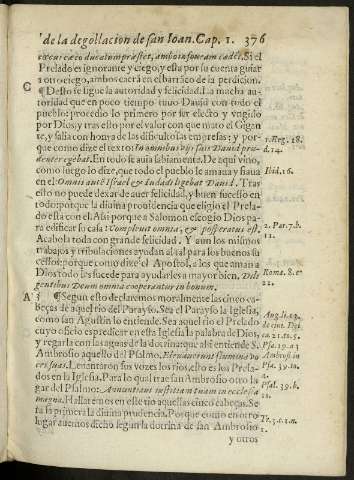 de la degollacion de san Ioan. Cap. 1. 376
cæcus cæco ducatum præstet, ambo in foueam cadet. Si el
Prelado es ignorante y ciego, y esta por su cuenta guiar
a otro ciego, ambos caerà en el barráco de la perdicion.
C ¶ Desto se ligue la autoridad y felicidad. La mucha au-
toridad que en poco tiempo tuuo Dauid con todo el
pueblo: procedio lo primero por ser electo y vngido
por Dios, y tras esto por el valor con que mato el Gigan
te, y salia con honra de las dificultosas empresas: y por-
que como dize el texto: In omnibus vijs suis Dauid pru-
denter egebat. En todo se auia sabiamente. De aqui vino,
como luego lo dize, que todo el pueblo le amaua y fiaua
en el: Omnis autē Israel & Iuda diligebat Dauid. Tras
ello no puede dexar de auer felicidad, y buen sucesso en
todo: porque la diuina prouidencia que eligio el Prela-
do esta con el. Assi porque a Salomon escogio Dios pa-
ra edificar su casa: Compleuit omnia, & prosperatus est.
Acabola toda con grande felicidad. Y aun los mismos
trabajos y tribulaciones ayudan al tal para los buenos su
cessos: porque como dize el Apostol, a los que aman a
Dios todo les sucede para ayudarles a mayor bien. Dili
gentibus Deum omnia cooperantur in bonum.
A 3 ¶ Segun esto declaremos moralmente las cinco ca-
beças de aquel rio del Parayso. Sea el Parayso la Iglesia,
como san Agustin lo entiende. Sea aquel rio el Prelado
cuyo oficio es predicar en esta Iglesia la palabra de Dios,
y regarla con las aguas de la dotrina: que assi entiende S.
Ambrosio aquello del Psalmo, Eleuauerunt flumina vo
ces suas. Leuantaron sus vozes los rios, esto es los Prela-
dos en la Iglesia. Para lo qual trae san Ambrosio otro lu
gar del Psalmo: Annuntiaui iustitiam tuam in ecclesia
magna. Hallaremos en este rio aquellas cinco cabeças. Se
ra la primera la diuina prudencia. Porque como en otro
lugar auemos dicho segun la dotrina de san Ambrosio
y otros
1. Reg. 18.
d. 14.
Ibid. 16.
2. Par. 7. b.
11.
Roma. 8. e
22.
Aug. li. 13.
de ciuit. Dei
ca. 21. to. 5.
Psa. 29. a 3
Ambros. in
Psa. 39. to.
Psal. 39. b.